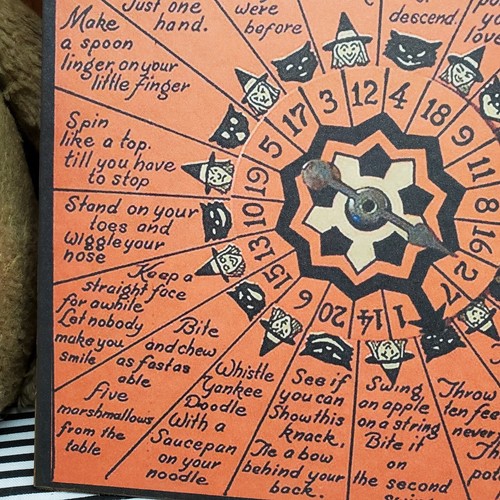 Make
a spoon
linger on your
little finger
Just one
hand.
were
before
descend.
you
Spin
like a top.
till you have
to stop
Stand on your
toes and
wiggle your
nose
Keep a
straight face
for awhile
Let nobody
make you
smile
Bite
and chew
as fast as
able
five
marshmallows
from the
table
Whistle
Yankee
Doodle
With a
Saucepan
on your
noodle.
See if
you can
Show this
knack,
Tie a bow
behind your
back.
Swing
an apple
on a string
Bite it
on
the second
Throw
ten
never
3
12
4
18
9
11
8
16
2
7
1
14
20
6
15
13
10
19
5
17